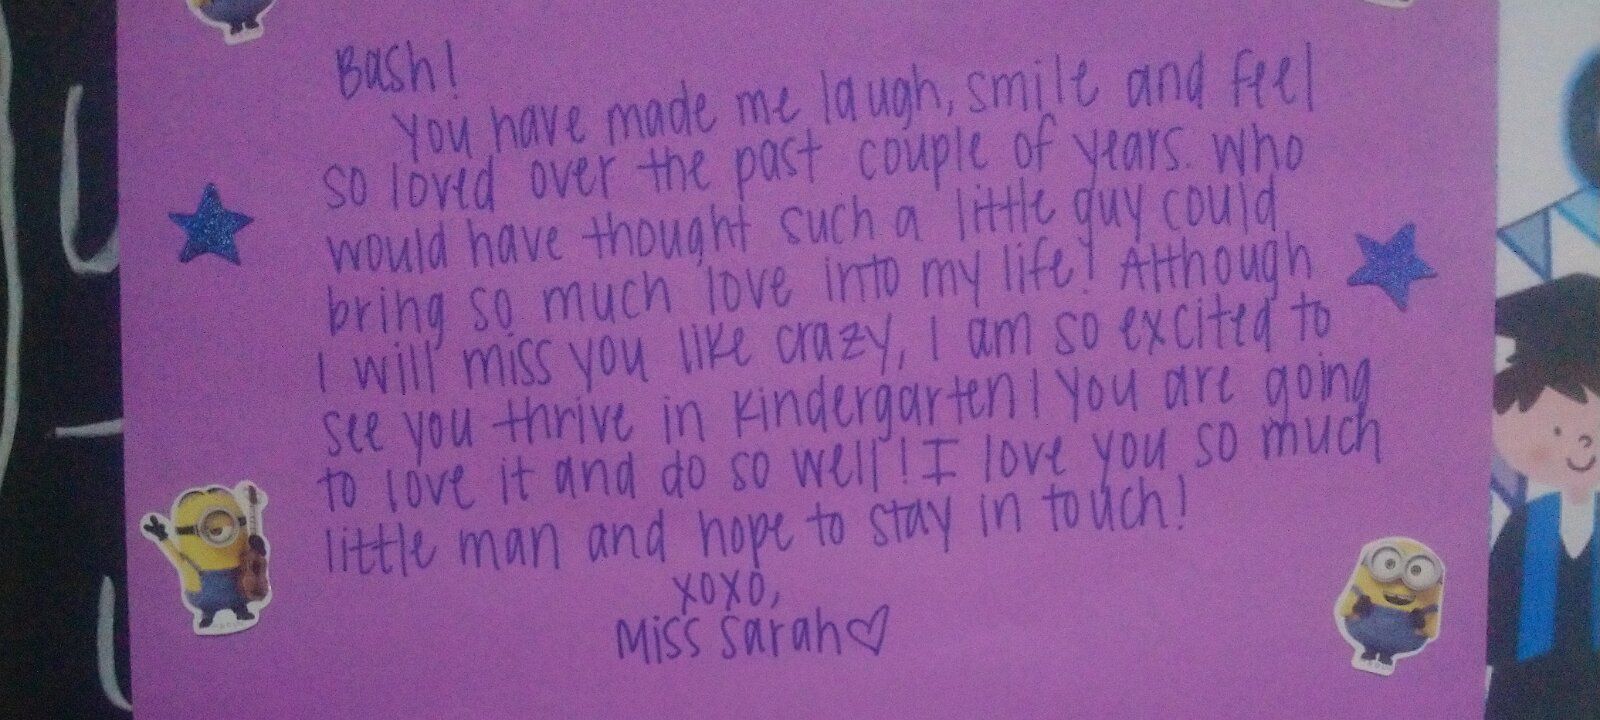 Bash!
You have made me laugh, smile and feel
so loved over the past couple of years. Who
would have thought such a little guy could
bring so much love into my life! Although
I will miss you like crazy, I am so excited to
see you thrive in kindergarten! You are going
to love it and do so well! I love you so much
little man and hope to stay in touch!
xoxo,
Miss Sarah♡